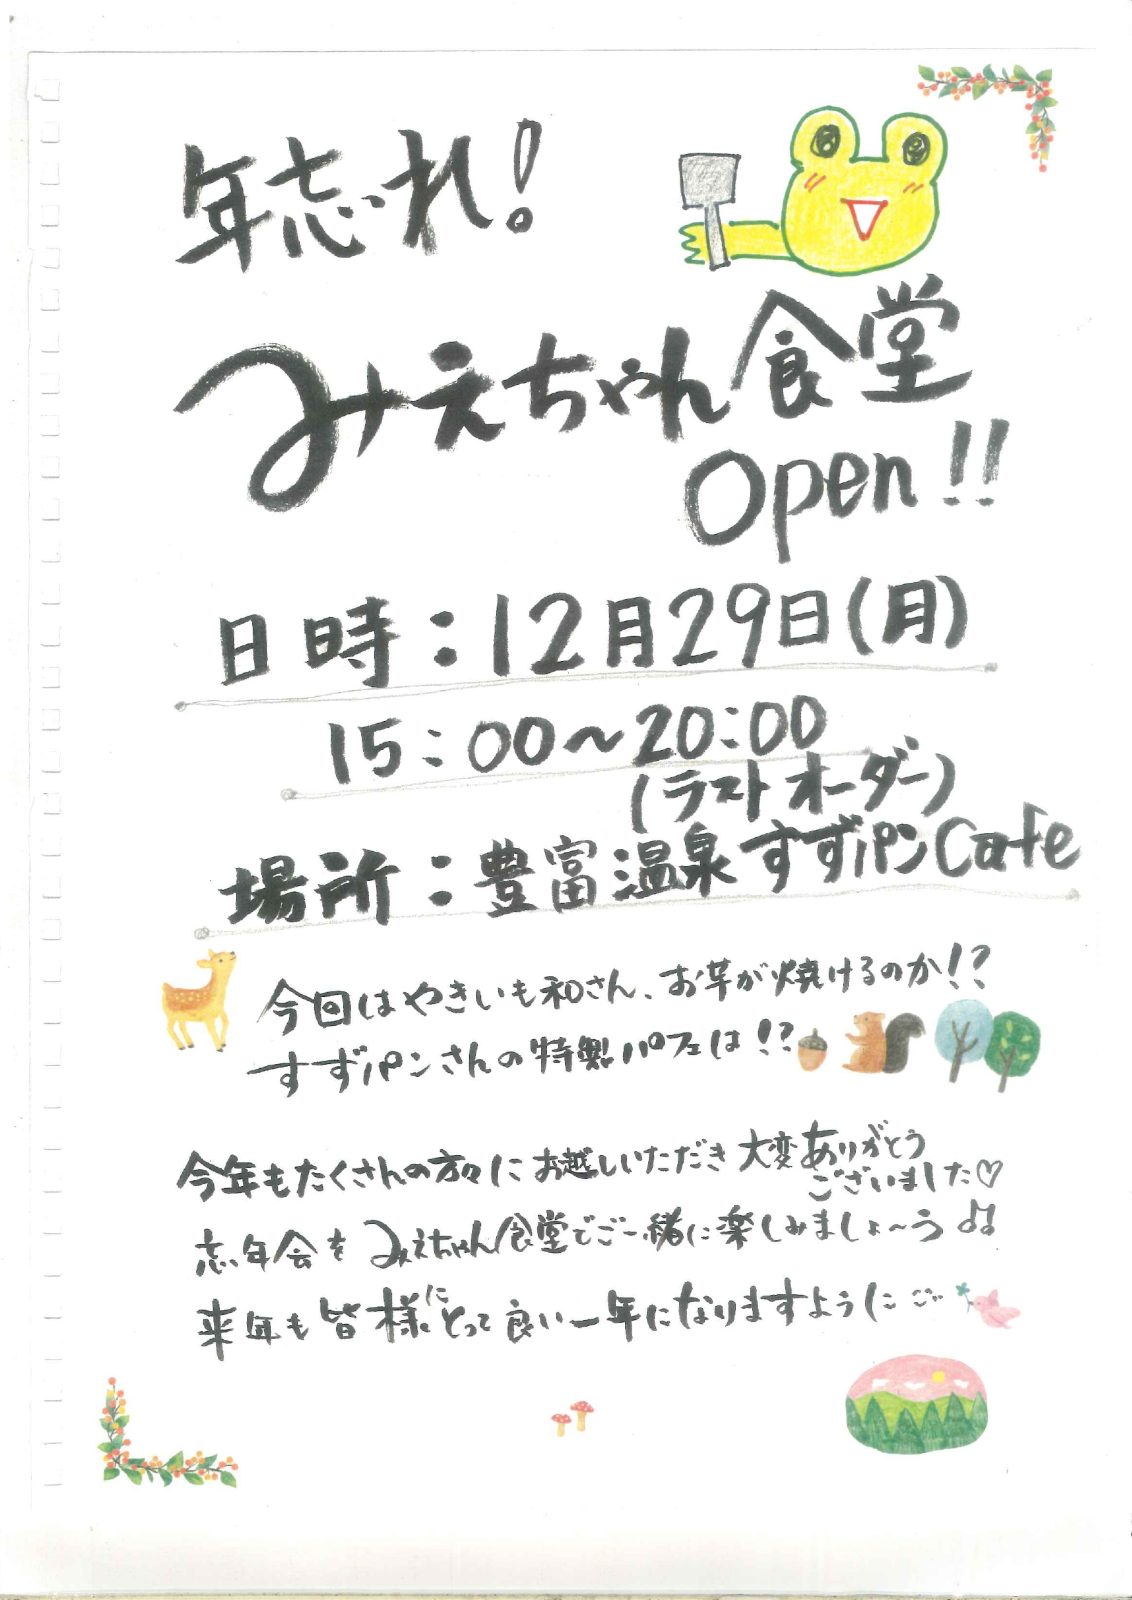 年忘れ!
みえちゃん食堂
Open!!
日時:12月29日(月)
15:00~20:00
(ラストオーダー)
場所:豊富温泉すずパンCafe
今回はやきいも和さん、お芋が焼けるのか!?
すずパンさんの特製パフェは!?
今年もたくさんの方々にお越しいただき大変ありがとう
ございました♡
忘年会をみえちゃん食堂でご一緒に楽しみましょ~う♫
来年も皆様にとって良い一年になりますように